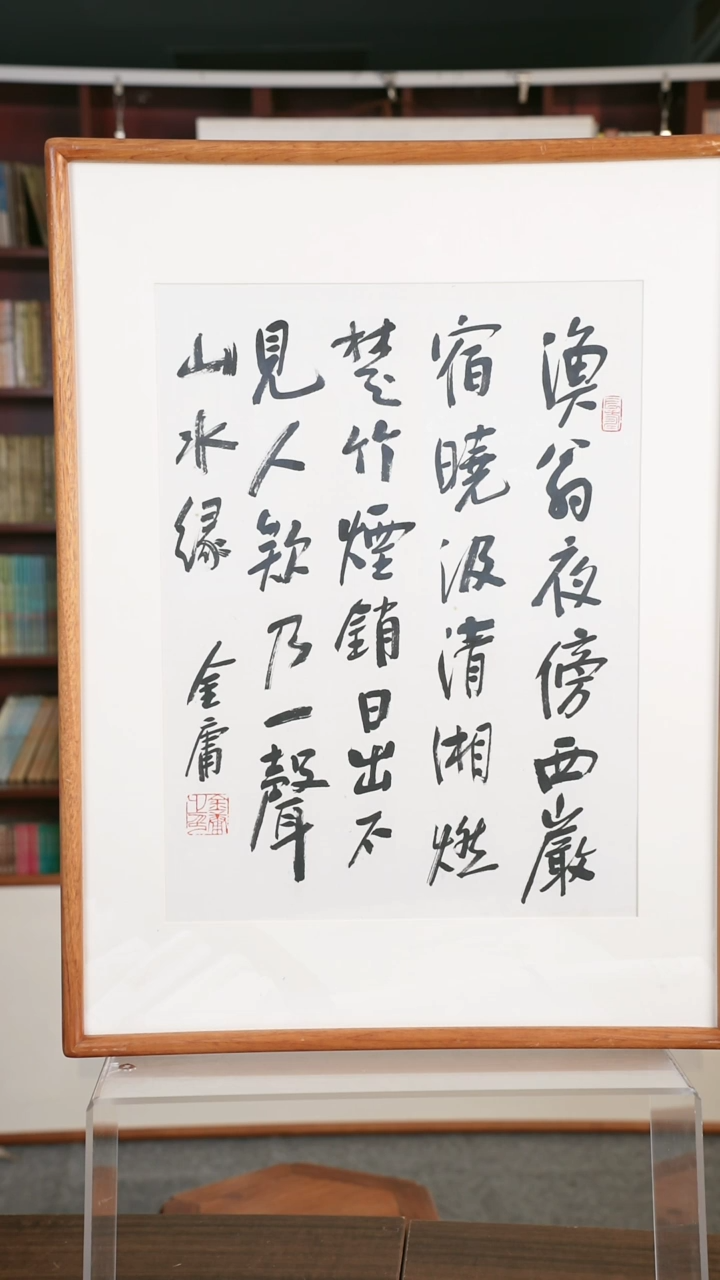 漁翁夜傍西巖
宿曉汲清湘燃
楚竹煙銷日出不
見人欸乃一聲
山水緣
金庸